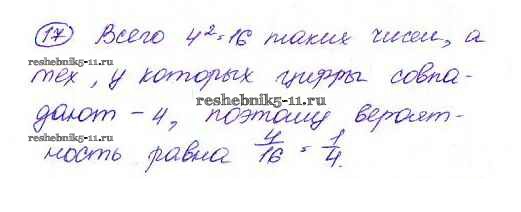 17 Всего 4²=16 таких чисел, а
reshebnik5-11.ru
тех, у которых цифры совпа-
reshebnik5-11.ru
дают - 4, поэтому вероят-
reshebnik5-11.ru
ность равна 4/16 = 1/4.